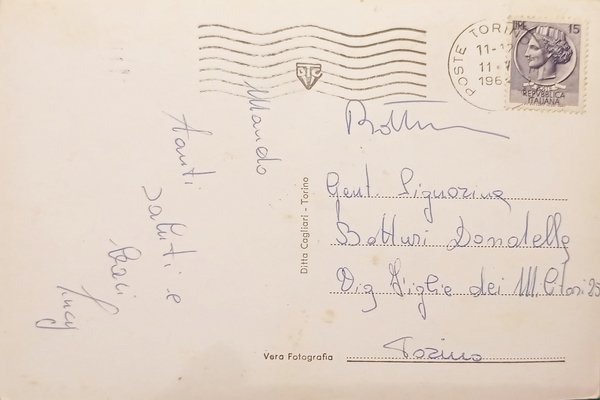 POSTE TORI
11-12
11
196
LIRE 15
REPUBBLICA
ITALIANA
Mando
Tanti
saluti e
baci
Lucy
Ditta Cagliari - Torino
Gent. Signorina
Botturi Donatella
Via Figlie dei Militari 25
Torino
Vera Fotografia